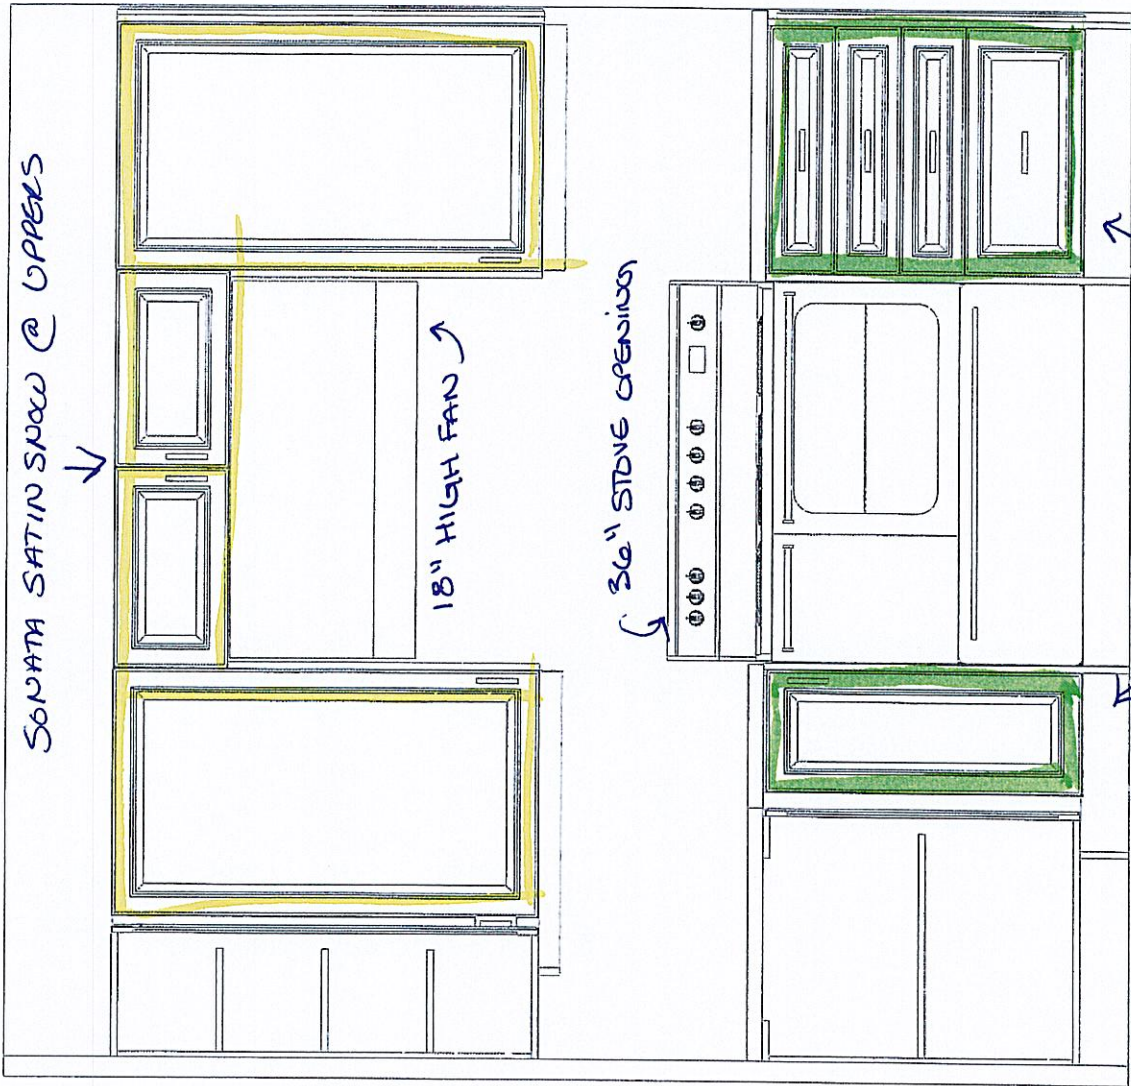 SONATA SATIN SNOW @ UPPERS
18" HIGH FAN
36" STOVE OPENING